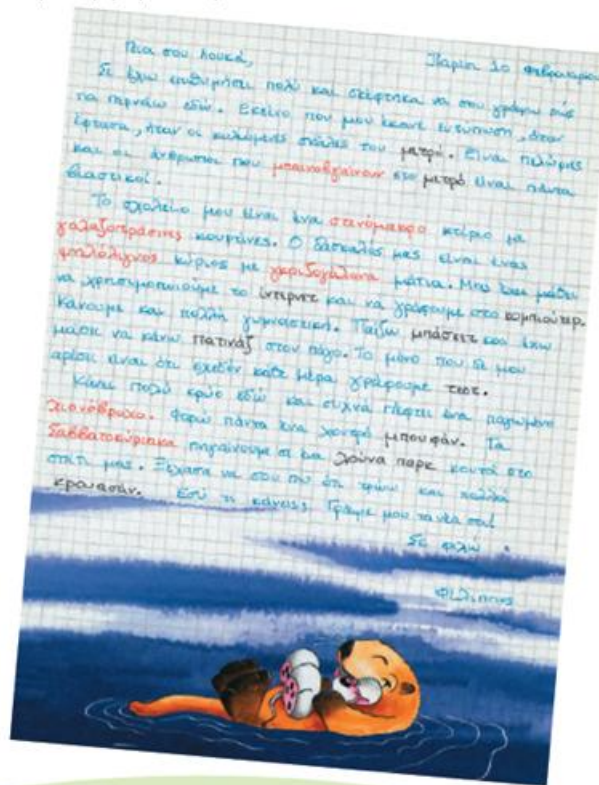 Γεια σου Λουκά, Παρίσι 10 Φεβρουαρίου
Σε έχω επιθυμήσει πολύ και σκέφτηκα να σου γράψω πώς
τα περνάω εδώ. Εκείνο που μου έκανε εντύπωση, όταν
έφτασα, ήταν οι κυλιόμενες σκάλες του μετρό. Είναι πελώριες
και οι άνθρωποι που μπαινοβγαίνουν στο μετρό είναι πάντα
βιαστικοί.
Το σχολείο μου είναι ένα στενόμακρο κτίριο με
γαλαζοπράσινες κουρτίνες. Ο δάσκαλός μας είναι ένας
ψηλόλιγνος κύριος με γκριζογάλανα μάτια. Μας έχει μάθει
να χρησιμοποιούμε το ίντερνετ και να γράφουμε στο κομπιούτερ.
Κάνουμε και πολλή γυμναστική. Παίζω μπάσκετ και έχω
μάθει να κάνω πατινάζ στον πάγο. Το μόνο που δε μου
αρέσει είναι ότι σχεδόν κάθε μέρα γράφουμε τεστ.
Κάνει πολύ κρύο εδώ και συχνά πέφτει ένα παγωμένο
χιονόβροχο. Φοράω πάντα ένα χοντρό μπουφάν. Τα
Σαββατοκύριακα πηγαίνουμε σε ένα λούνα παρκ κοντά στο
σπίτι μας. Ξέχασα να σου πω ότι τρώω και πολλά
κρουασάν. Εσύ τι κάνεις; Γράψε μου τα νέα σου!
Σε φιλώ
Φίλιππος